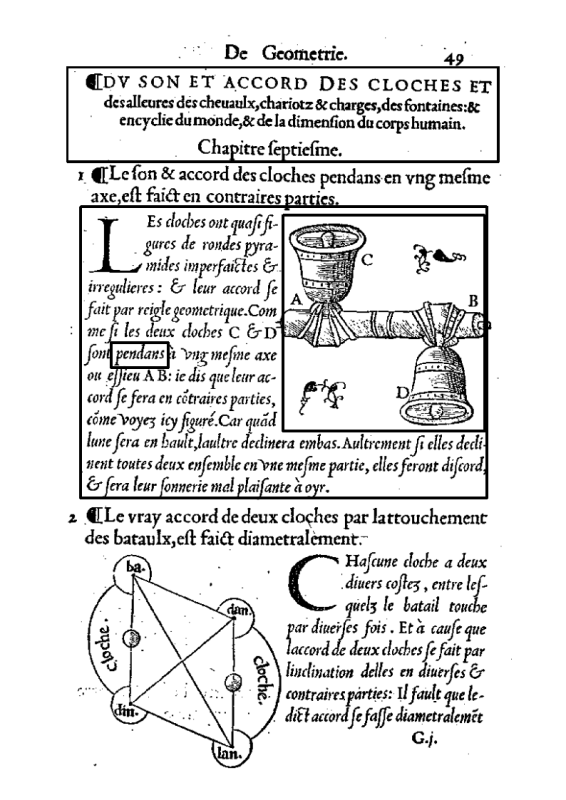 De Geometrie.
49
¶DV SON ET ACCORD DES CLOCHES ET
des alleures des cheuaulx, chariotz & charges, des fontaines: &
encyclie du monde, & de la dimenſion du corps humain.
Chapitre ſeptieſme.
1 ¶Le ſon & accord des cloches pendans en vng meſme
axe, eſt faict en contraires parties.
LEs cloches ont quaſi fi-
gures de rondes pyra-
mides imperfaictes &
irregulieres: & leur accord ſe
fait par reigle geometrique. Com
me ſi les deux cloches C & D
ſont pendans ſi vng meſme axe
ou eſſieu A B: ie dis que leur ac-
cord ſe fera en cõtraires parties,
cõme voyez icy figuré. Car quãd
lune ſera en hault, laultre declinera embas. Aultrement ſi elles decli-
nent toutes deux enſemble en vne meſme partie, elles ſeront diſcord,
& ſera leur ſonnerie mal plaiſante à oyr.
C
A
B
D
2 ¶Le vray accord de deux cloches par lattouchement
des bataulx, eſt faict diametralement.
CHaſcune cloche a deux
diuers coſtez, entre leſ-
quelz le batail touche
par diuerſes fois. Et à cauſe que
laccord de deux cloches ſe fait par
linclination delles en diuerſes &
contraires parties: Il fault que le-
dict accord ſe faſſe diametralemẽt
ba.
dan.
cloche.
cloche.
din.
lan.
G.j.